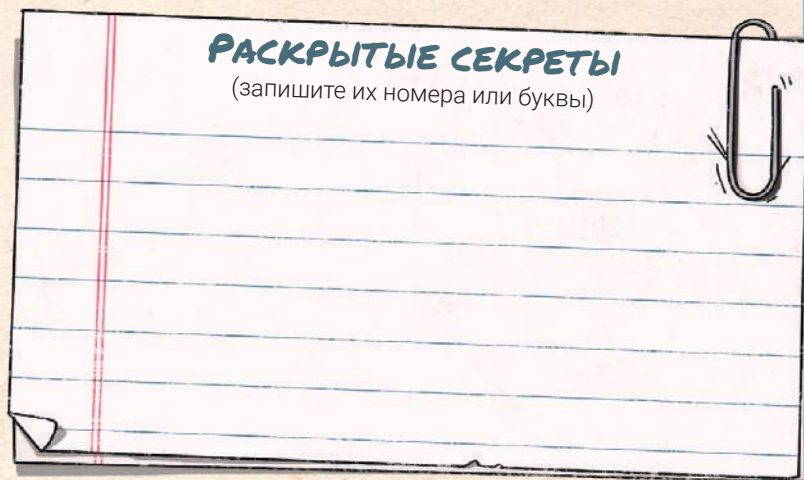 РАСКРЫТЫЕ СЕКРЕТЫ
(запишите их номера или буквы)